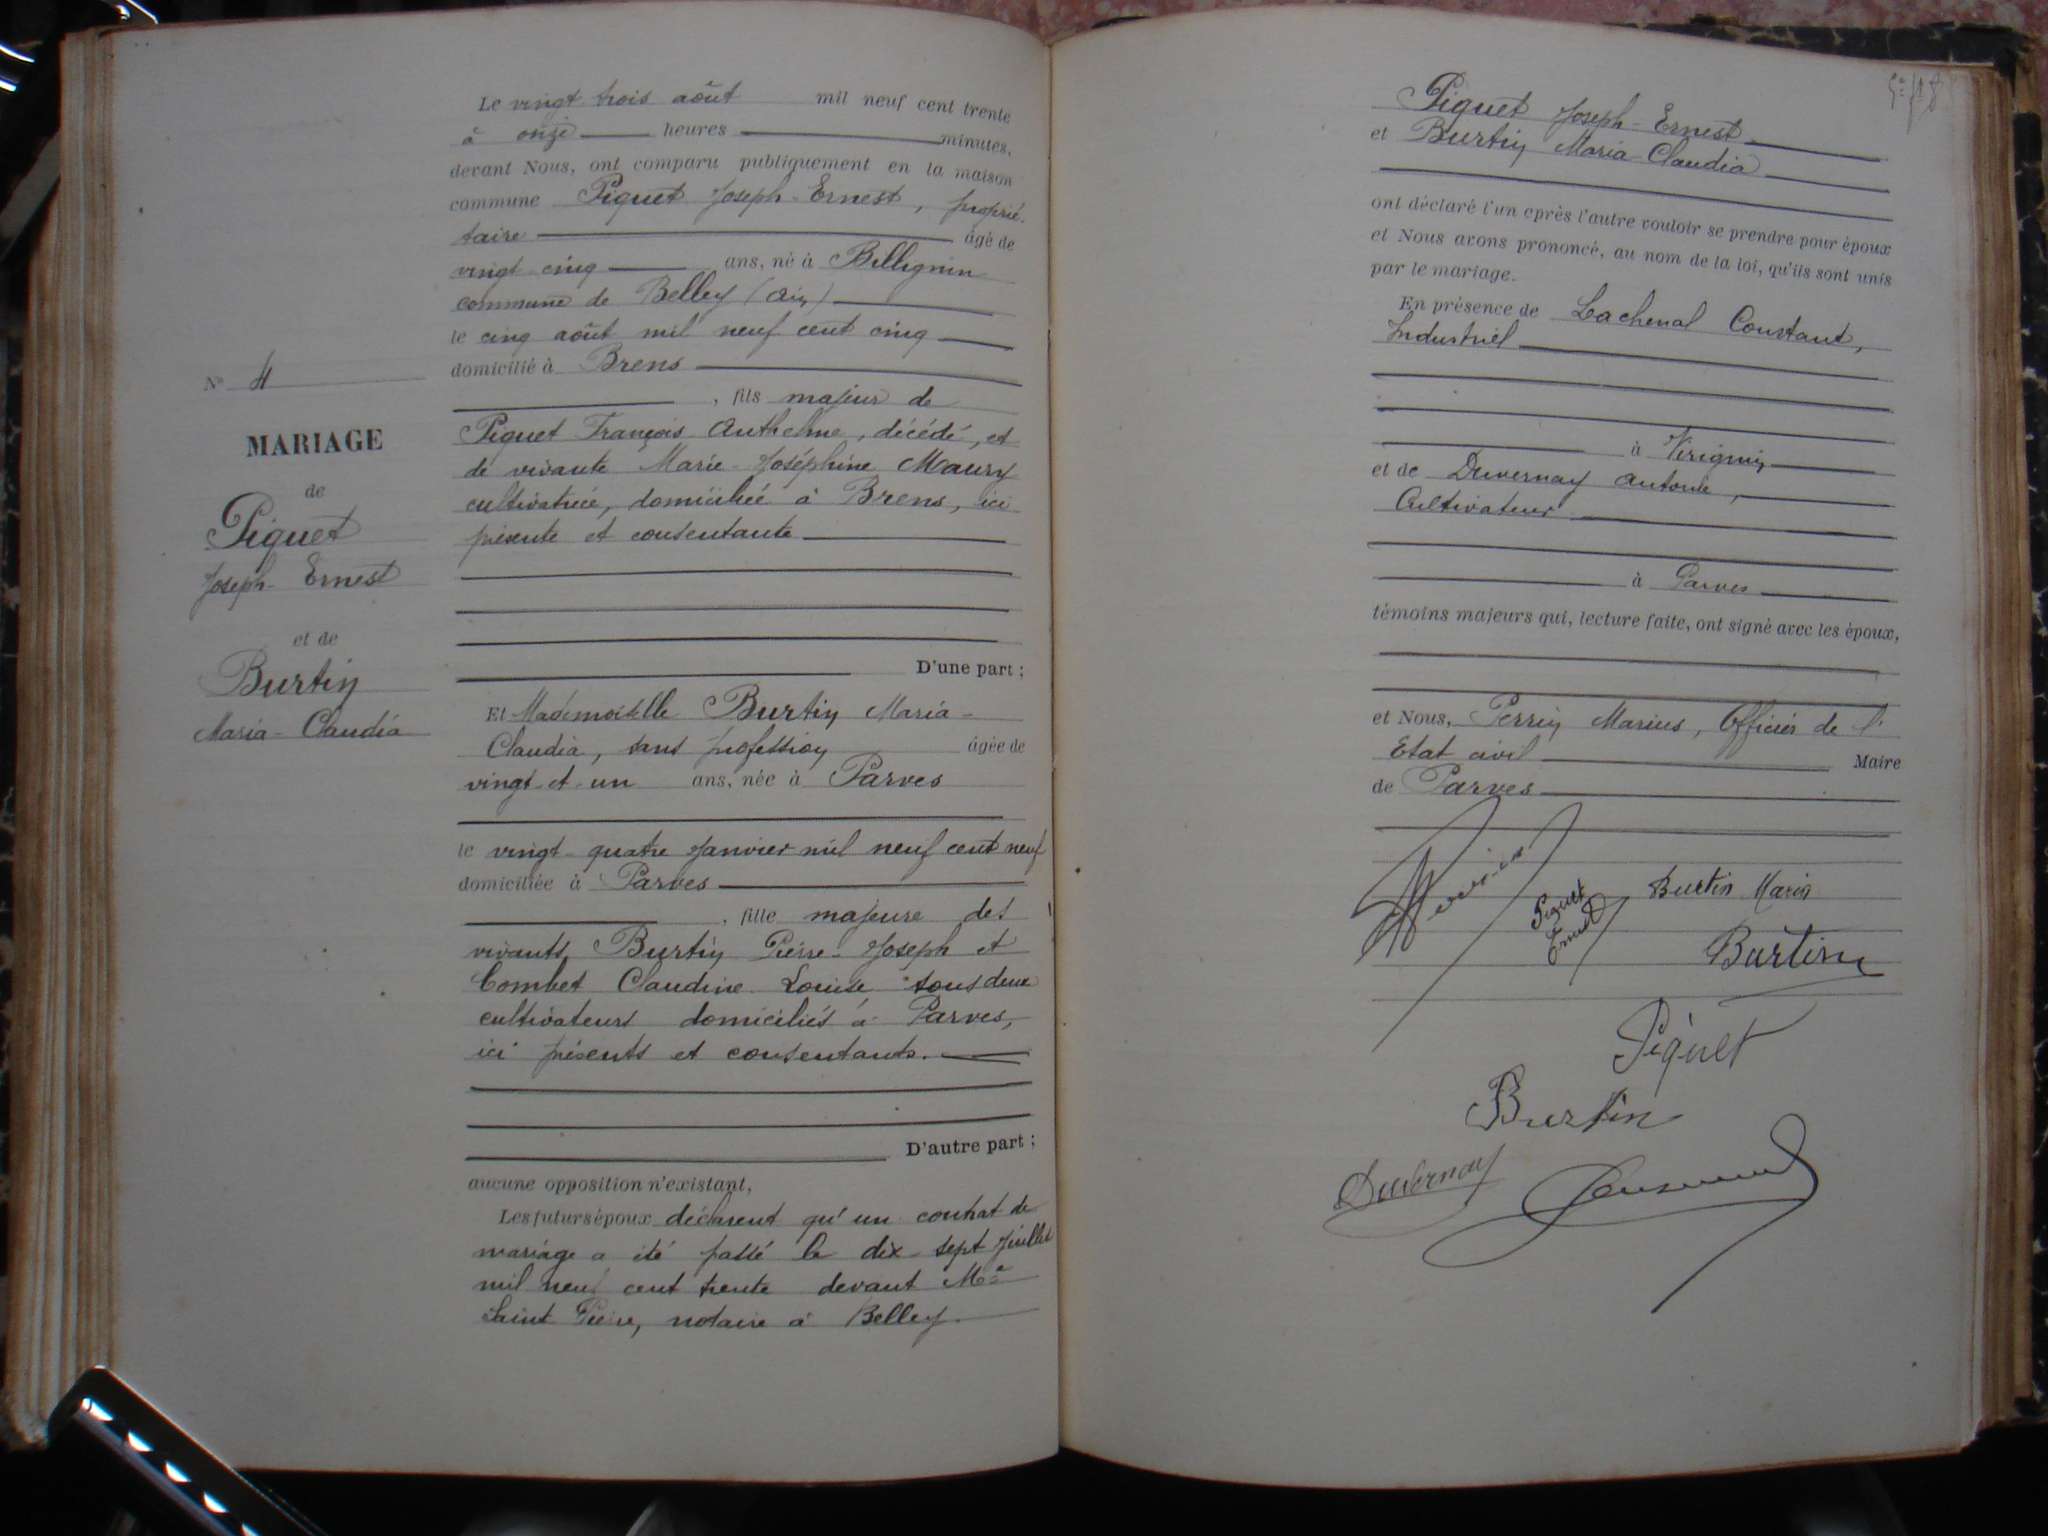 Le vingt trois août mil neuf cent trente
à onze heures minutes,
devant Nous, ont comparu publiquement en la maison
commune Piquet Joseph-Ernest, proprié-
taire âgé de
vingt-cinq ans, né à Billignin
commune de Belley (Ain)
le cinq août mil neuf cent cinq
domicilié à Brens
, fils majeur de
Piquet François-Anthelme, décédé, et
de vivante Marie-Joséphine Maury
cultivatrice, domiciliée à Brens, ici
présente et consentante
D'une part ;
Et Mademoiselle Burtin Maria-
Claudia, sans profession âgée de
vingt-et-un ans, née à Parves
le vingt-quatre Janvier mil neuf cent neuf
domiciliée à Parves
, fille majeure des
vivants, Burtin Pierre-Joseph et
Combet Claudine Louise tous deux
cultivateurs domiciliés à Parves,
ici présents et consentants.
D'autre part ;
aucune opposition n'existant,
Les futurs époux déclarent qu'un contrat de
mariage a été passé le dix-sept Juillet
mil neuf cent trente devant Me
Saint Pierre, notaire à Belley.
No 4
MARIAGE
de
Piquet
Joseph-Ernest
et de
Burtin
Maria-Claudia
Piquet Joseph-Ernest
et Burtin Maria-Claudia
ont déclaré l'un après l'autre vouloir se prendre pour époux
et Nous avons prononcé, au nom de la loi, qu'ils sont unis
par le mariage.
En présence de Lachenal Constant,
Industriel
à Virignin
et de Duvernay Antoine,
Cultivateur
à Parves
témoins majeurs qui, lecture faite, ont signé avec les époux,
et Nous, Perrin Marius, Officier de l'
Etat civil Maire
de Parves
Perrin
Piquet
Ernest
Burtin Maria
Burtin
Piquet
Burtin
Duvernay